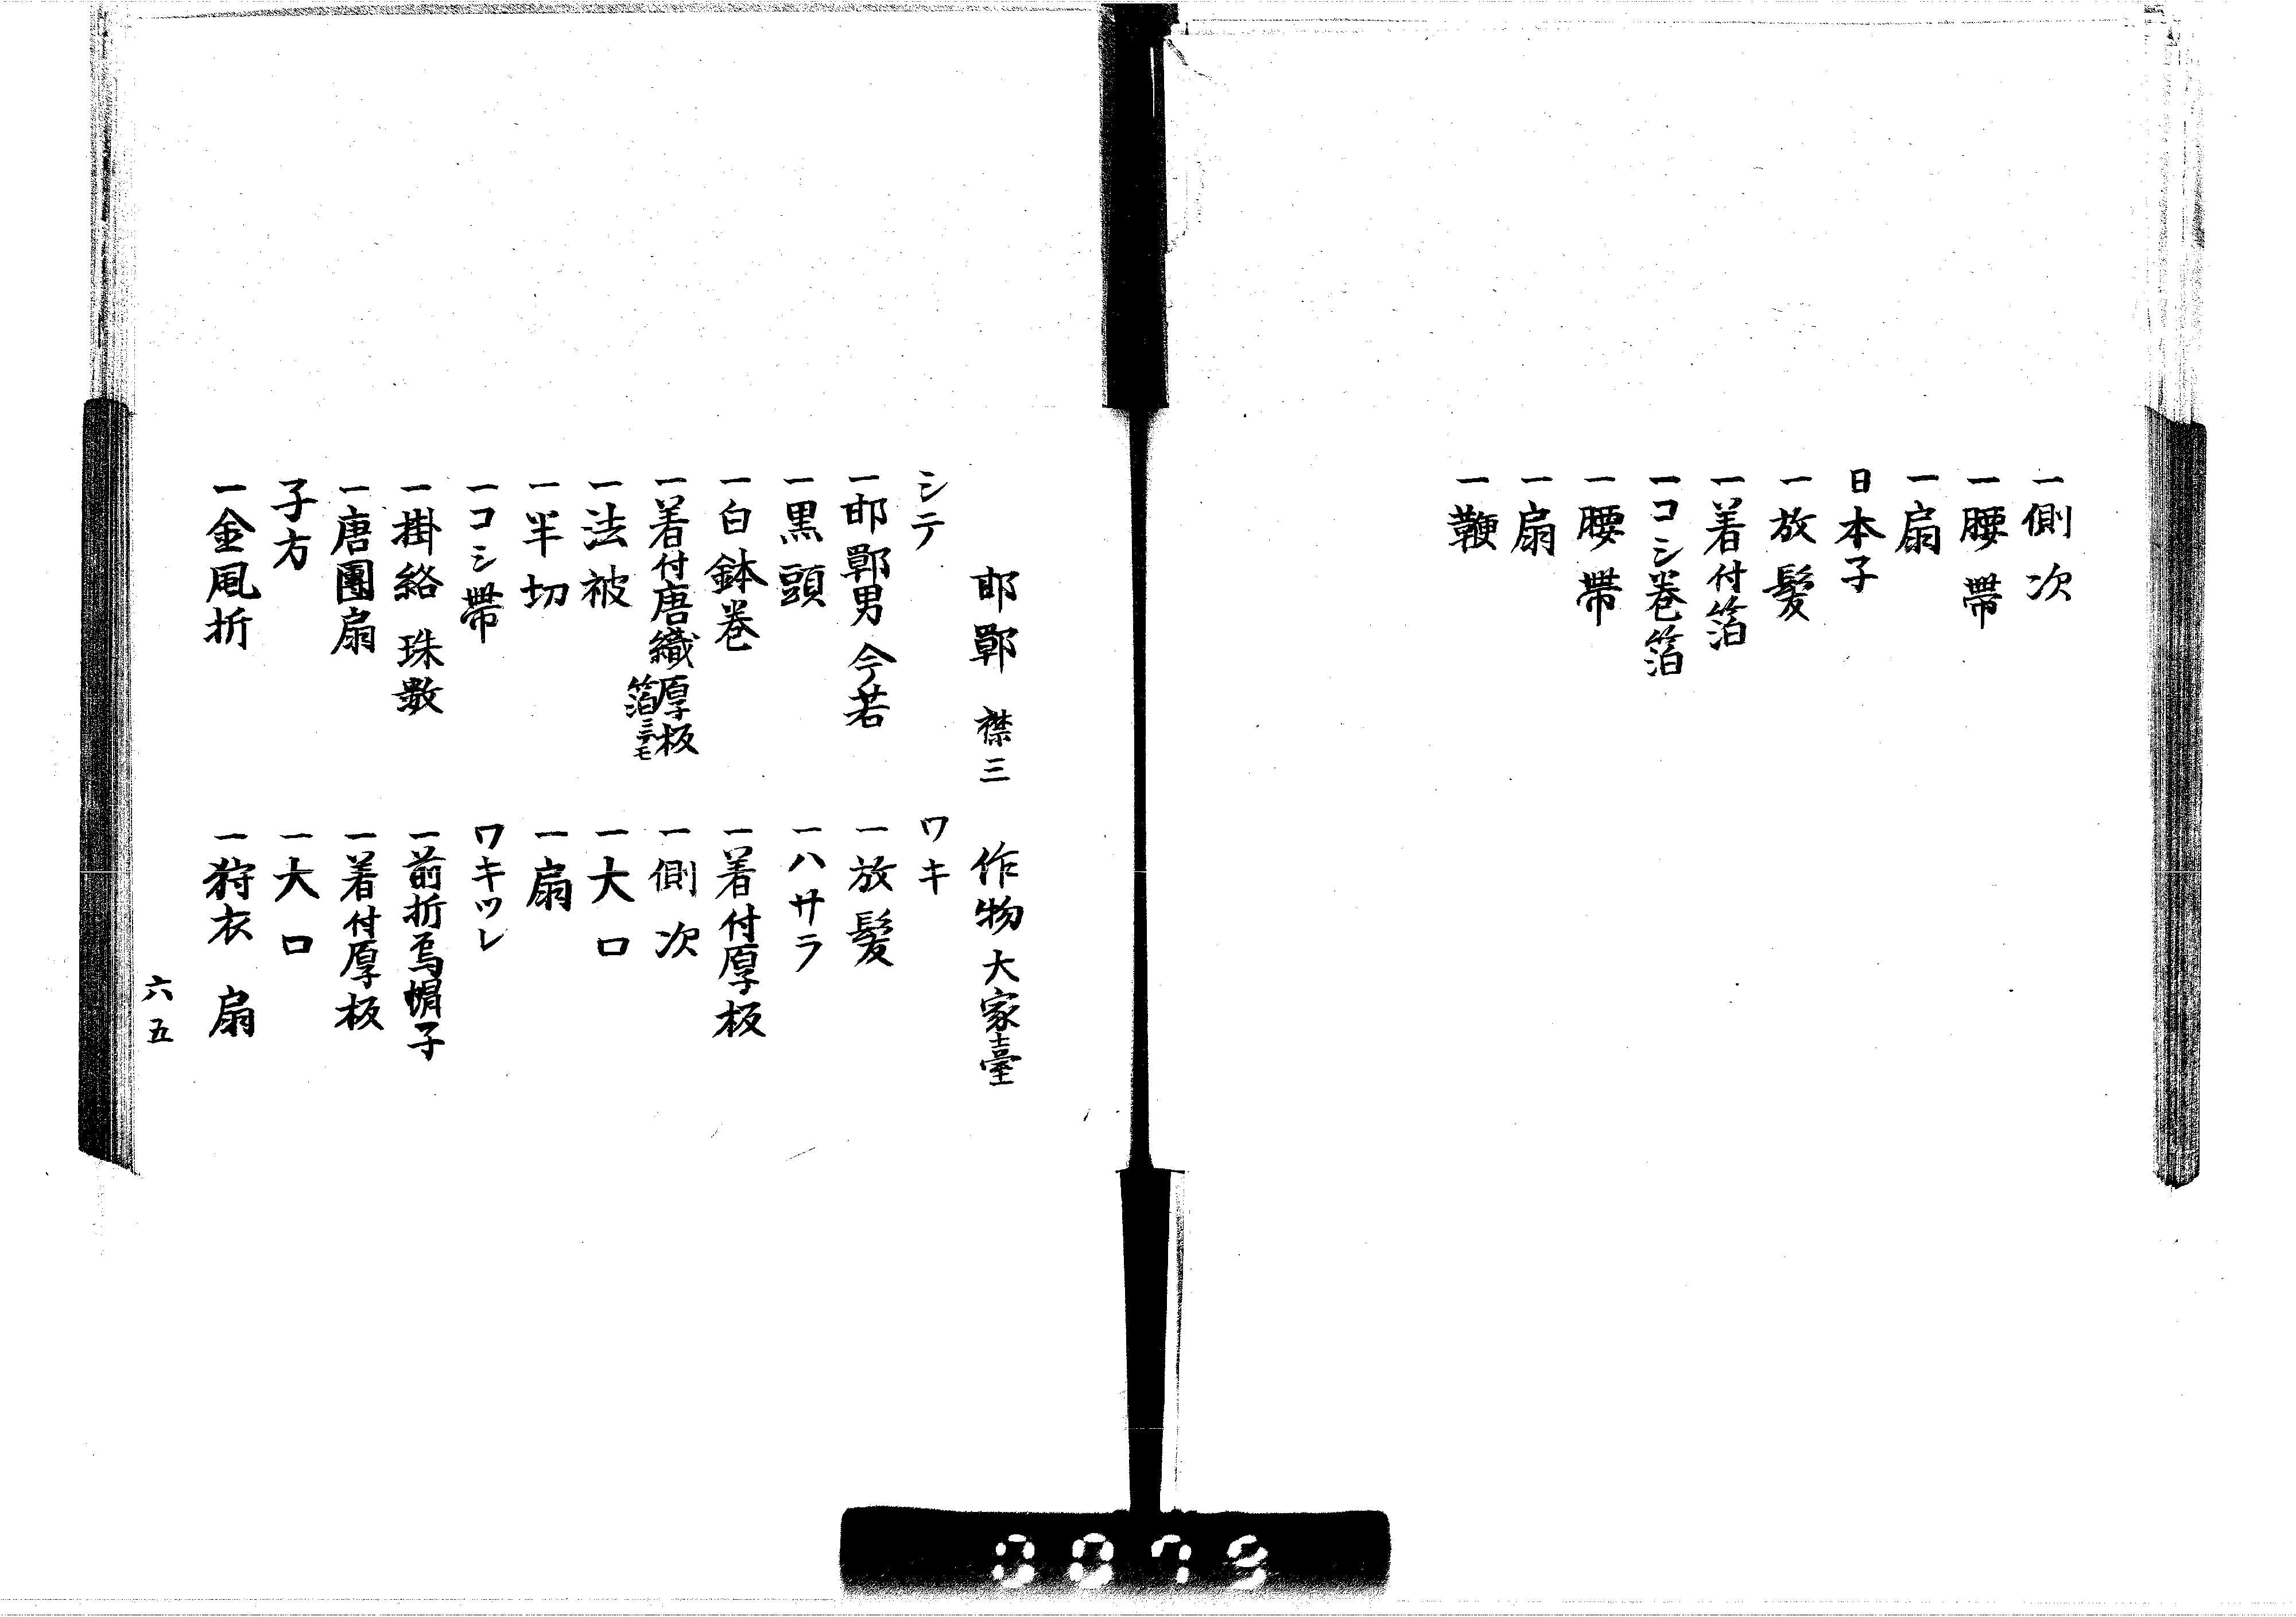 一側次
一腰帶
一扇
日本子
一放髪
一着付箔
一コシ巻箔
一腰帶
一扇
一鞭
邯鄲 襟三 作物大家臺
シテ
一邯鄲男 今若
一黒頭
一白鉢巻
一着付唐織 厚板
箔ニテモ
一法被
一半切
一コシ帶
一掛絡 珠數
一唐團扇
子方
一金風折
ワキ
一放髪
一ハサラ
一着付厚板
一側次
一大口
一扇
ワキツレ
一前折烏帽子
一着付厚板
一大口
一狩衣 扇
六五